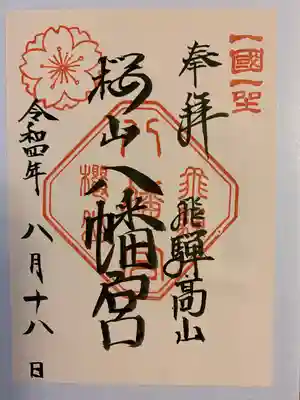 奉拝
飛騨高山
桜山八幡宮
令和四年 八月十八日